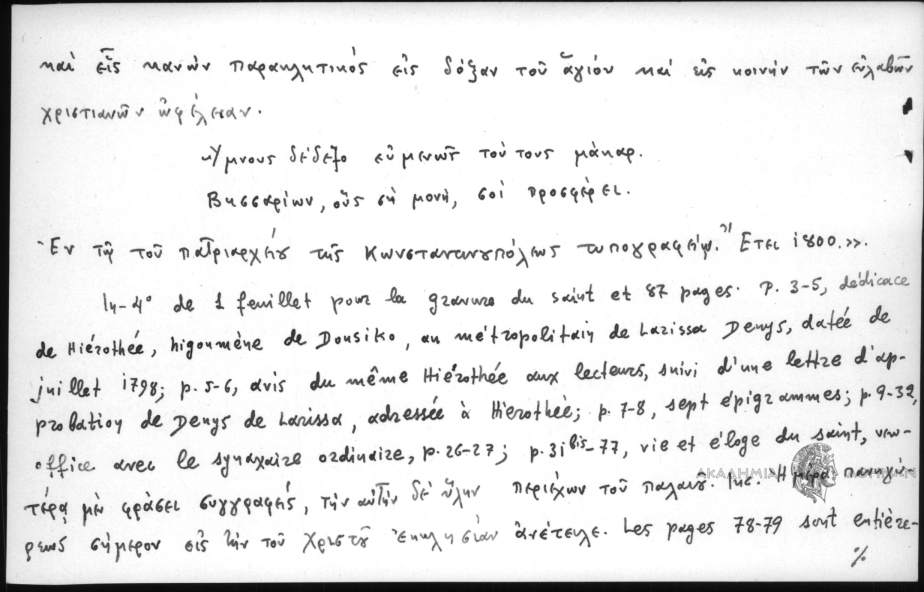 καὶ εἷς κανὼν παρακλητικός εἰς δόξαν τοῦ ἁγίου καὶ εἰς κοινὴν τῶν εὐλαβῶν
χριστιανῶν ὠφέλειαν.
Ὕμνους δέδεξο εὐμενῶς τούτους μάκαρ.
Βησσαρίων, οὓς σὴ μονή, σοὶ προσφέρει.
Ἐν τῷ τοῦ πατριαρχείου τῆς Κωνσταντινουπόλεως τυπογραφείῳ. Ἔτει 1800.».
In-4° de 1 feuillet pour la gravure du saint et 87 pages. P. 3-5, dédicace
de Hiérothée, higoumène de Dousiko, au métropolitain de Larissa Denys, datée de
juillet 1798; p. 5-6, avis du même Hiérothée aux lecteurs, suivi d'une lettre d'ap-
probation de Denys de Larissa, adressée à Hiérothée; p. 7-8, sept épigrammes; p. 9-32,
office avec le synaxaire ordinaire, p. 26-27; p. 31 bis-77, vie et éloge du saint, νεω-
τέρᾳ μὲν φράσει συγγραφείς, τὴν αὐτὴν δὲ ὕλην περιέχων τοῦ παλαιοῦ. Inc. Ἡμέρα πανηγύ-
ρεως σήμερον εἰς τὴν τοῦ Χριστοῦ Ἐκκλησίαν ἀνέτειλε. Les pages 78-79 sont entière-
%
ΑΚΑΔΗΜΙΑ ΑΘΗΝΩΝ